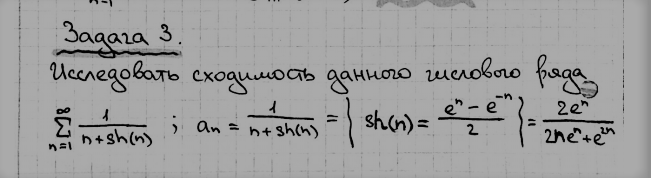 n=1
Задача 3.
Исследовать сходимость данного числового ряда
∞ ∑ n=1 1/(n+sh(n)) ; aₙ = 1/(n+sh(n)) = { sh(n) = (eⁿ - e⁻ⁿ)/2 } = 2eⁿ/(2neⁿ+e²ⁿ)